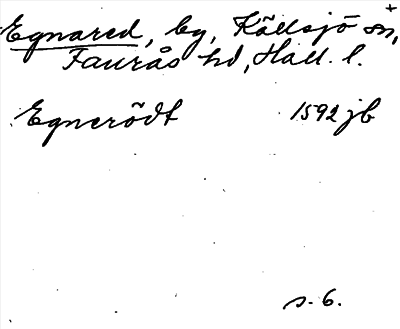 Egnared, by, Källsjö sn, +
Faurås hd, Hall. l.
Egnerödt 1592 jb
s. 6.